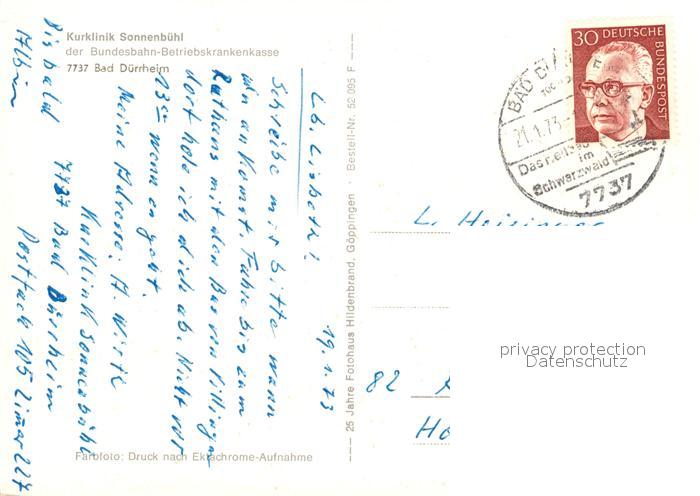 Kurklinik Sonnenbühl
der Bundesbahn-Betriebskrankenkasse
7737 Bad Dürrheim
19.1.73
Lb. Lisbeth!
Schreibe mir bitte wann
du ankommst. Fahre bis zum
Rathaus mit dem Bus von Villingen
dort hole ich dich ab. Nicht vor
13°° wenn es geht.
Meine Adresse: A. Wirth
Kurklinik Sonnenbühl
7737 Bad Dürrheim
Postfach 105 Zimmer 227
Bis bald
Albin
Farbfoto: Druck nach Ektachrome-Aufnahme
25 Jahre Fotohaus Hildenbrand, Göppingen · Bestell-Nr. 52 095 F
30 DEUTSCHE
BUNDESPOST
BAD
21.1.73
im
Schwarzwald
7737
L. Heisinger
82
privacy protection
Datenschutz